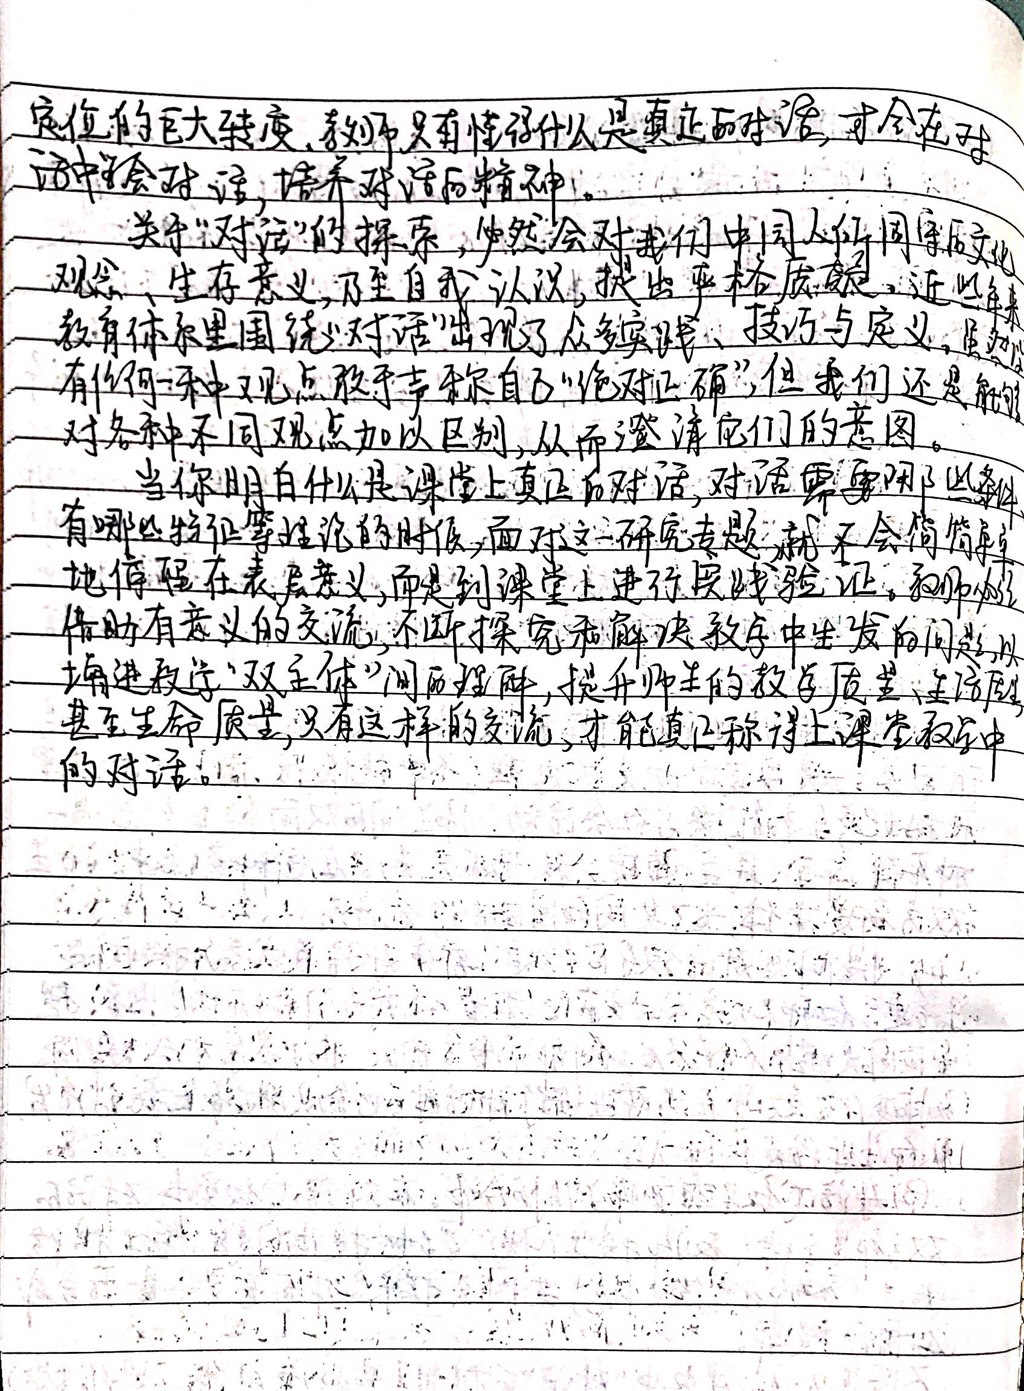 定位的巨大转变、教师只有懂得什么是真正的对话,才会在对
话中学会对话,培养对话的精神。
关于“对话”的探索,必然会对我们中国人所固守的文化
观念、生存意义,乃至自我认识,提出严格质疑。近些年来
教育体系里围绕“对话”出现了众多实践、技巧与定义。虽然没
有任何一种观点敢于声称自己“绝对正确”,但我们还是能够
对各种不同观点加以区别,从而澄清它们的意图。
当你明白什么是课堂上真正的对话,对话需要哪些条件、
有哪些特征等理论的时候,面对这一研究专题,就不会简简单单
地停留在表层意义,而是到课堂上进行实践验证。教师必须
借助有意义的交流,不断探究和解决教学中生发的问题,以
增进教学“双主体”间的理解,提升师生的教学质量、生活质量,
甚至生命质量,只有这样的交流,才能真正称得上课堂教学中
的对话。